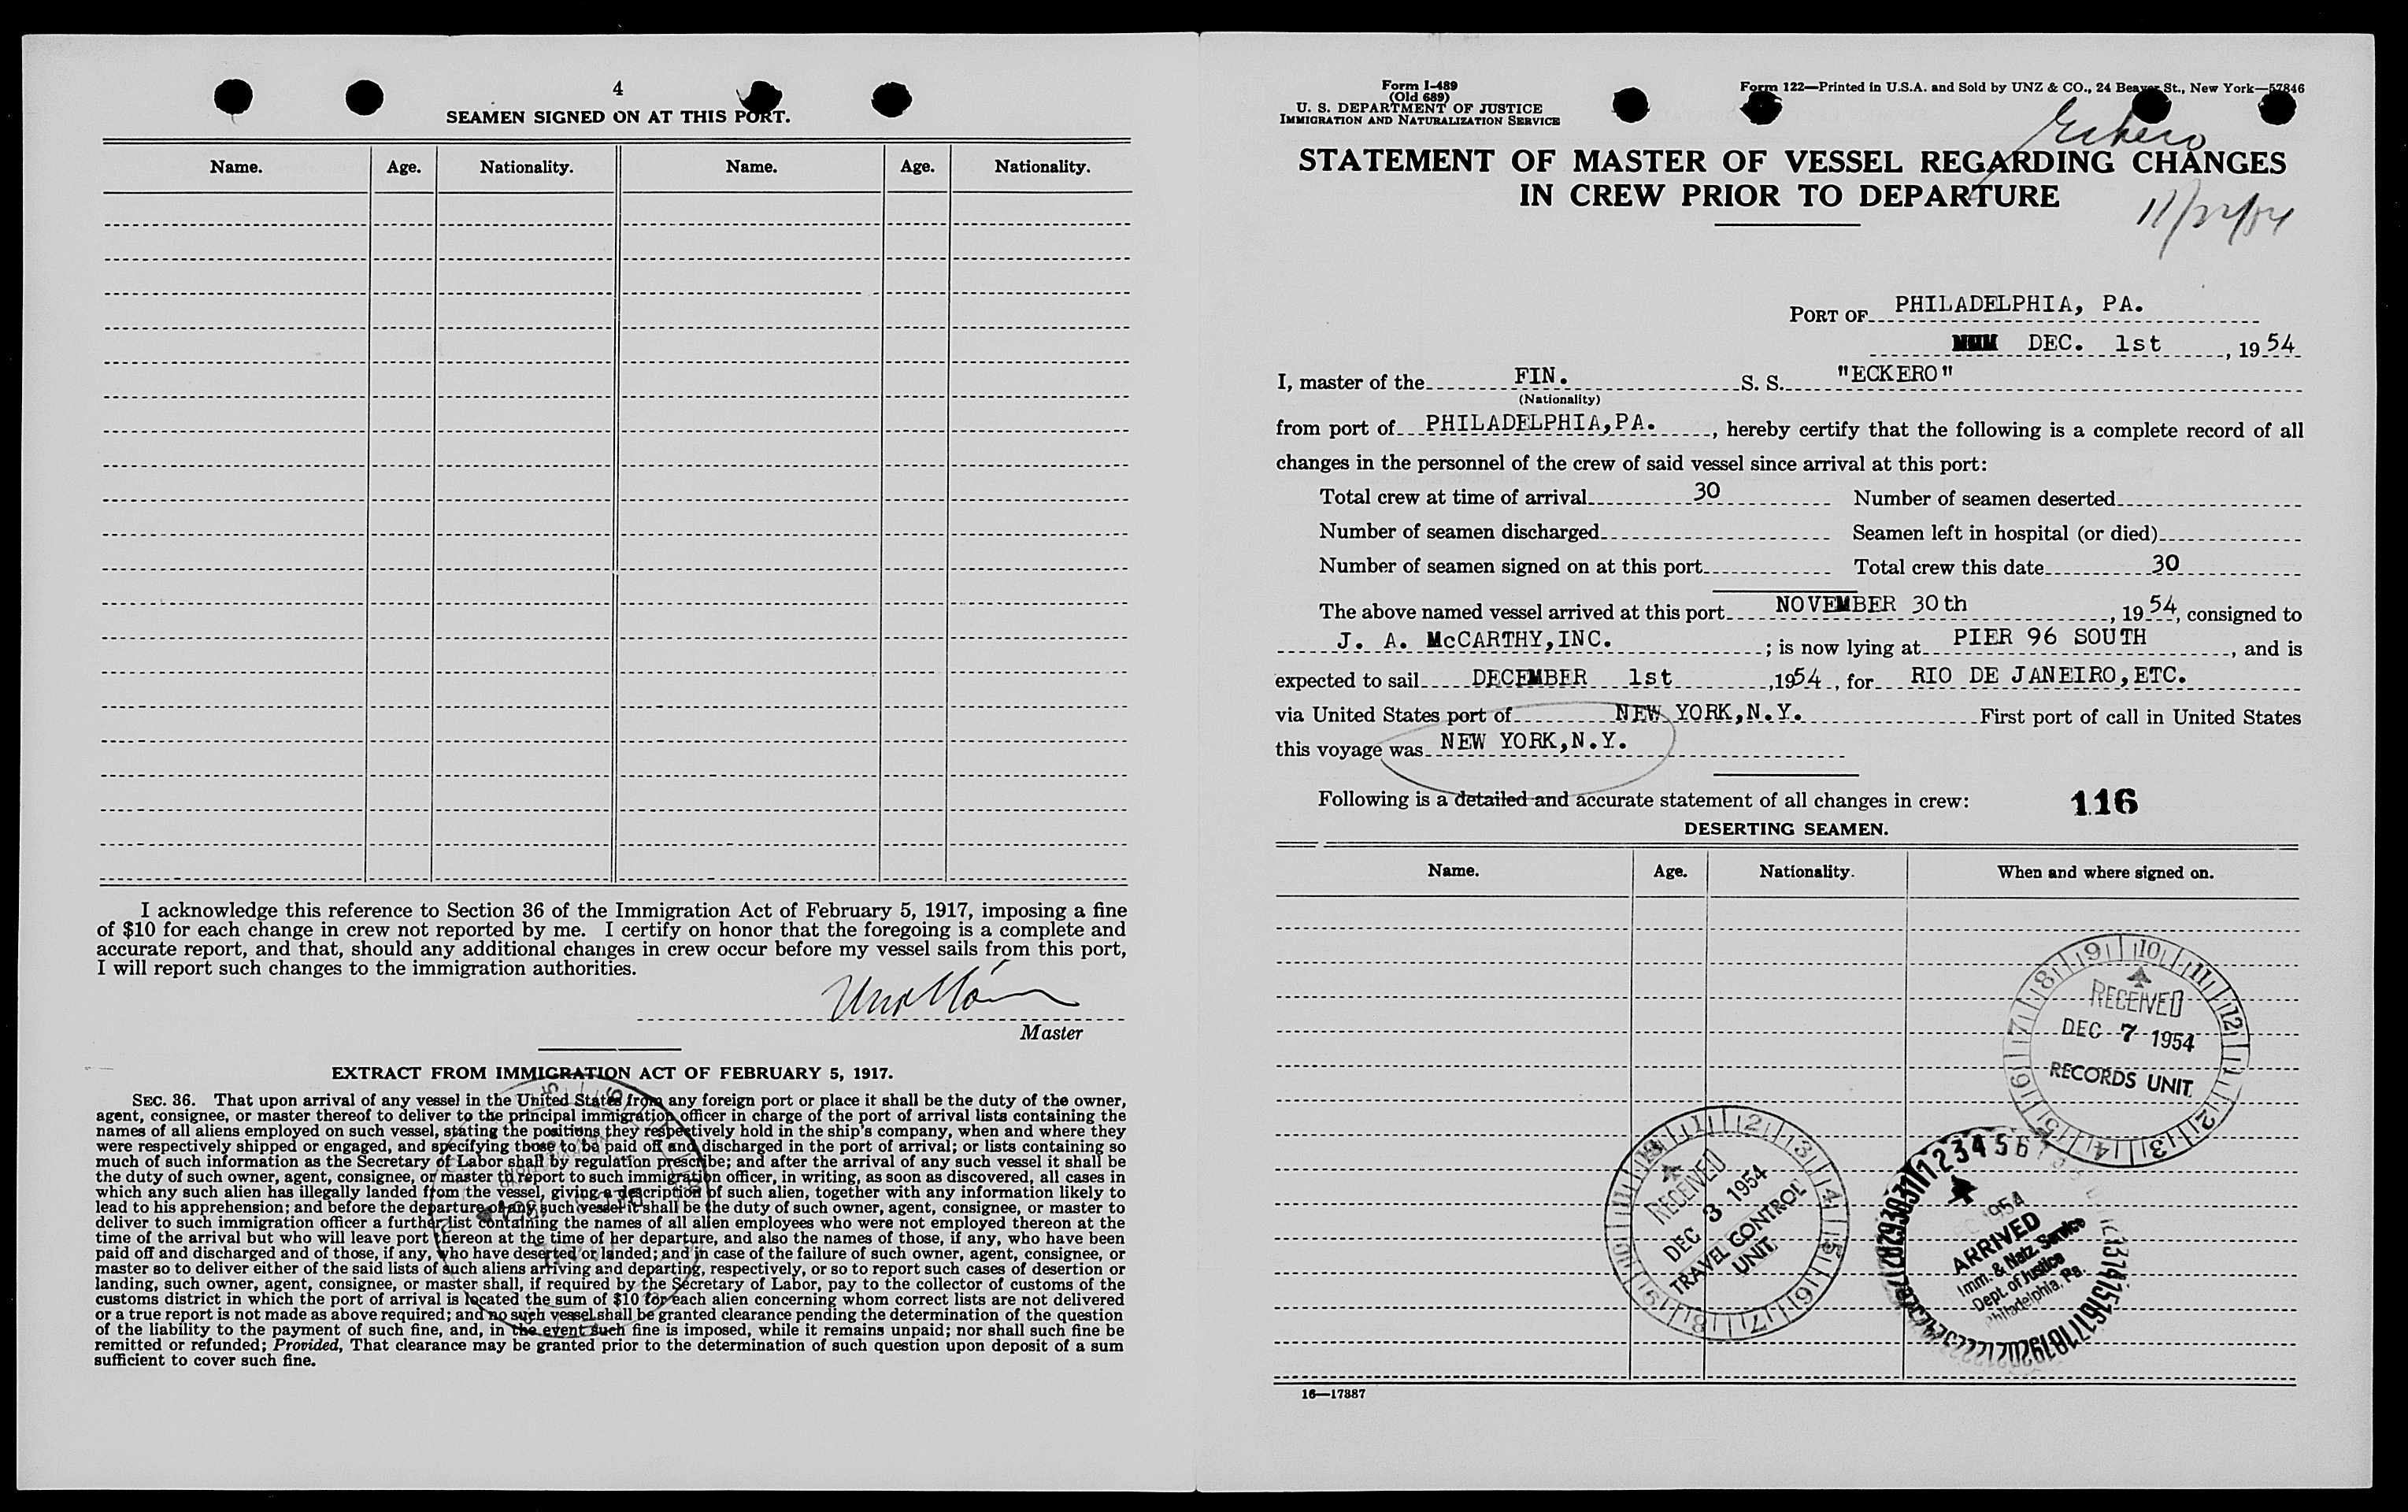 4
SEAMEN SIGNED ON AT THIS PORT.
Name. Age. Nationality. Name. Age. Nationality.
I acknowledge this reference to Section 36 of the Immigration Act of February 5, 1917, imposing a fine
of $10 for each change in crew not reported by me. I certify on honor that the foregoing is a complete and
accurate report, and that, should any additional changes in crew occur before my vessel sails from this port,
I will report such changes to the immigration authorities.
Master
EXTRACT FROM IMMIGRATION ACT OF FEBRUARY 5, 1917.
SEC. 36. That upon arrival of any vessel in the United States from any foreign port or place it shall be the duty of the owner,
agent, consignee, or master thereof to deliver to the principal immigration officer in charge of the port of arrival lists containing the
names of all aliens employed on such vessel, stating the positions they respectively hold in the ship's company, when and where they
were respectively shipped or engaged, and specifying those to be paid off and discharged in the port of arrival; or lists containing so
much of such information as the Secretary of Labor shall by regulation prescribe; and after the arrival of any such vessel it shall be
the duty of such owner, agent, consignee, or master to report to such immigration officer, in writing, as soon as discovered, all cases in
which any such alien has illegally landed from the vessel, giving a description of such alien, together with any information likely to
lead to his apprehension; and before the departure of any such vessel it shall be the duty of such owner, agent, consignee, or master to
deliver to such immigration officer a further list containing the names of all alien employees who were not employed thereon at the
time of the arrival but who will leave port thereon at the time of her departure, and also the names of those, if any, who have been
paid off and discharged and of those, if any, who have deserted or landed; and in case of the failure of such owner, agent, consignee, or
master so to deliver either of the said lists of such aliens arriving and departing, respectively, or so to report such cases of desertion or
landing, such owner, agent, consignee, or master shall, if required by the Secretary of Labor, pay to the collector of customs of the
customs district in which the port of arrival is located the sum of $10 for each alien concerning whom correct lists are not delivered
or a true report is not made as above required; and no such vessel shall be granted clearance pending the determination of the question
of the liability to the payment of such fine, and, in the event such fine is imposed, while it remains unpaid; nor shall such fine be
remitted or refunded; Provided, That clearance may be granted prior to the determination of such question upon deposit of a sum
sufficient to cover such fine.
Form I-489
(Old 689)
U. S. DEPARTMENT OF JUSTICE
IMMIGRATION AND NATURALIZATION SERVICE
Form 122—Printed in U.S.A. and Sold by UNZ & CO., 24 Beaver St., New York—57846
Eckero
STATEMENT OF MASTER OF VESSEL REGARDING CHANGES
IN CREW PRIOR TO DEPARTURE
11/22/54
PORT OF PHILADELPHIA, PA.
DEC. 1st, 1954
I, master of the FIN. S. S. "ECKERO"
(Nationality)
from port of PHILADELPHIA,PA., hereby certify that the following is a complete record of all
changes in the personnel of the crew of said vessel since arrival at this port:
Total crew at time of arrival 30 Number of seamen deserted
Number of seamen discharged Seamen left in hospital (or died)
Number of seamen signed on at this port Total crew this date 30
The above named vessel arrived at this port NOVEMBER 30th, 1954, consigned to
J. A. McCARTHY,INC. ; is now lying at PIER 96 SOUTH, and is
expected to sail DECEMBER 1st ,1954, for RIO DE JANEIRO,ETC.
via United States port of NEW YORK,N.Y. First port of call in United States
this voyage was NEW YORK,N.Y.
Following is a detailed and accurate statement of all changes in crew: 116
DESERTING SEAMEN.
Name. Age. Nationality. When and where signed on.
RECEIVED
DEC 7 1954
RECORDS UNIT
RECEIVED
DEC 3 1954
TRAVEL CONTROL
UNIT
1954
ARRIVED
Imm. & Natz. Service
Dept. of Justice
Philadelphia, Pa.
16—17887